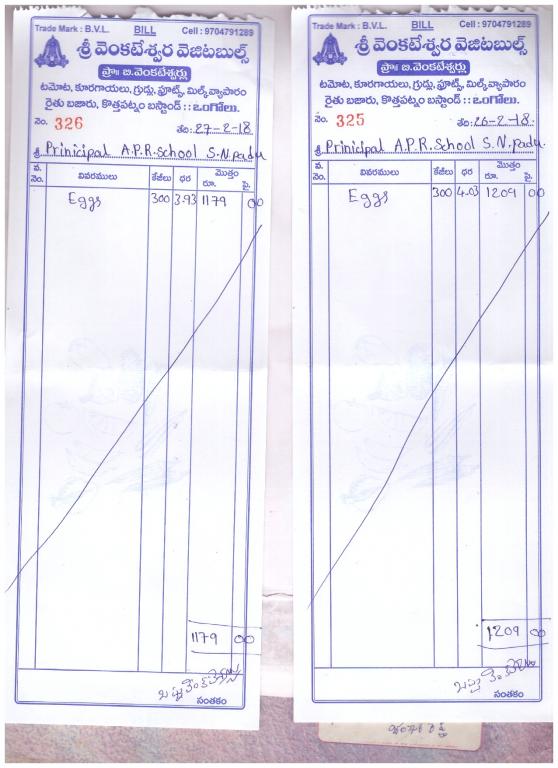 Trade Mark : B.V.L. BILL Cell : 9704791289
శ్రీ వెంకటేశ్వర వెజిటబుల్స్
ప్రొః బి.వెంకటేశ్వర్లు
టమోట, కూరగాయలు, గ్రుడ్లు, ఫ్రూట్స్, మిల్క్ వ్యాపారం
రైతు బజారు, కొత్తపట్నం బస్టాండ్ :: ఒంగోలు.
నెం. 326 తేది: 27-2-18
శ్రీ Prinicipal A.P.R.School S.N.padu
వ. నెం. వివరములు కేజీలు ధర మొత్తం రూ. పై.
Eggs 300 3.93 1179 00
1179 00
సంతకం
Trade Mark : B.V.L. BILL Cell : 9704791289
శ్రీ వెంకటేశ్వర వెజిటబుల్స్
ప్రొః బి.వెంకటేశ్వర్లు
టమోట, కూరగాయలు, గ్రుడ్లు, ఫ్రూట్స్, మిల్క్ వ్యాపారం
రైతు బజారు, కొత్తపట్నం బస్టాండ్ :: ఒంగోలు.
నెం. 325 తేది: 26-2-18.
శ్రీ Prinicipal A.P.R.School S.N.padu.
వ. నెం. వివరములు కేజీలు ధర మొత్తం రూ. పై.
Eggs 300 4.03 1209 00
1209 00
సంతకం